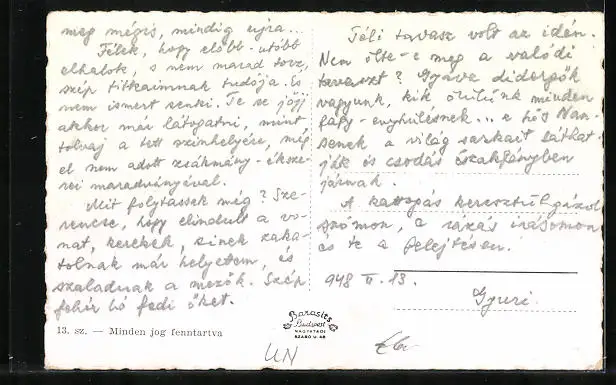 meg mégis, mindig ujra...
Félek, hogy előbb-utóbb
elhalok, s nem marad torz,
szép titkaimnak tudója. És
nem ismert senki. Te se jőjj
akkor már látogatni, mint
tolvaj a tett szinhelyére, míg
el nem adott zsákmány-éksze-
rei maradványával.
Mit folytassak még? Sze-
rencse, hogy elindult a vo-
nat, kerekek, sinek zaka-
tolnak már helyettem, és
szaladnak a mezők. Szép
fehér hó fedi őket.
Téli tavasz volt az idén.
Nem ölte-e meg a valódi
tavaszt? Gyáva didergők
vagyunk, kik örülünk minden
fagy-enyhülésnek... s hős Nan-
senek a világ sarkait láthat-
ják és csodás északfényben
járnak.
A kattogás keresztülgázol
szómon, a rázás irásomon
és te a felejtésen.
948 II. 13.
Gyuri.
13. sz. — Minden jog fenntartva
Barasits
Budapest
NAGYATÁDI
SZABÓ U. 48
UN